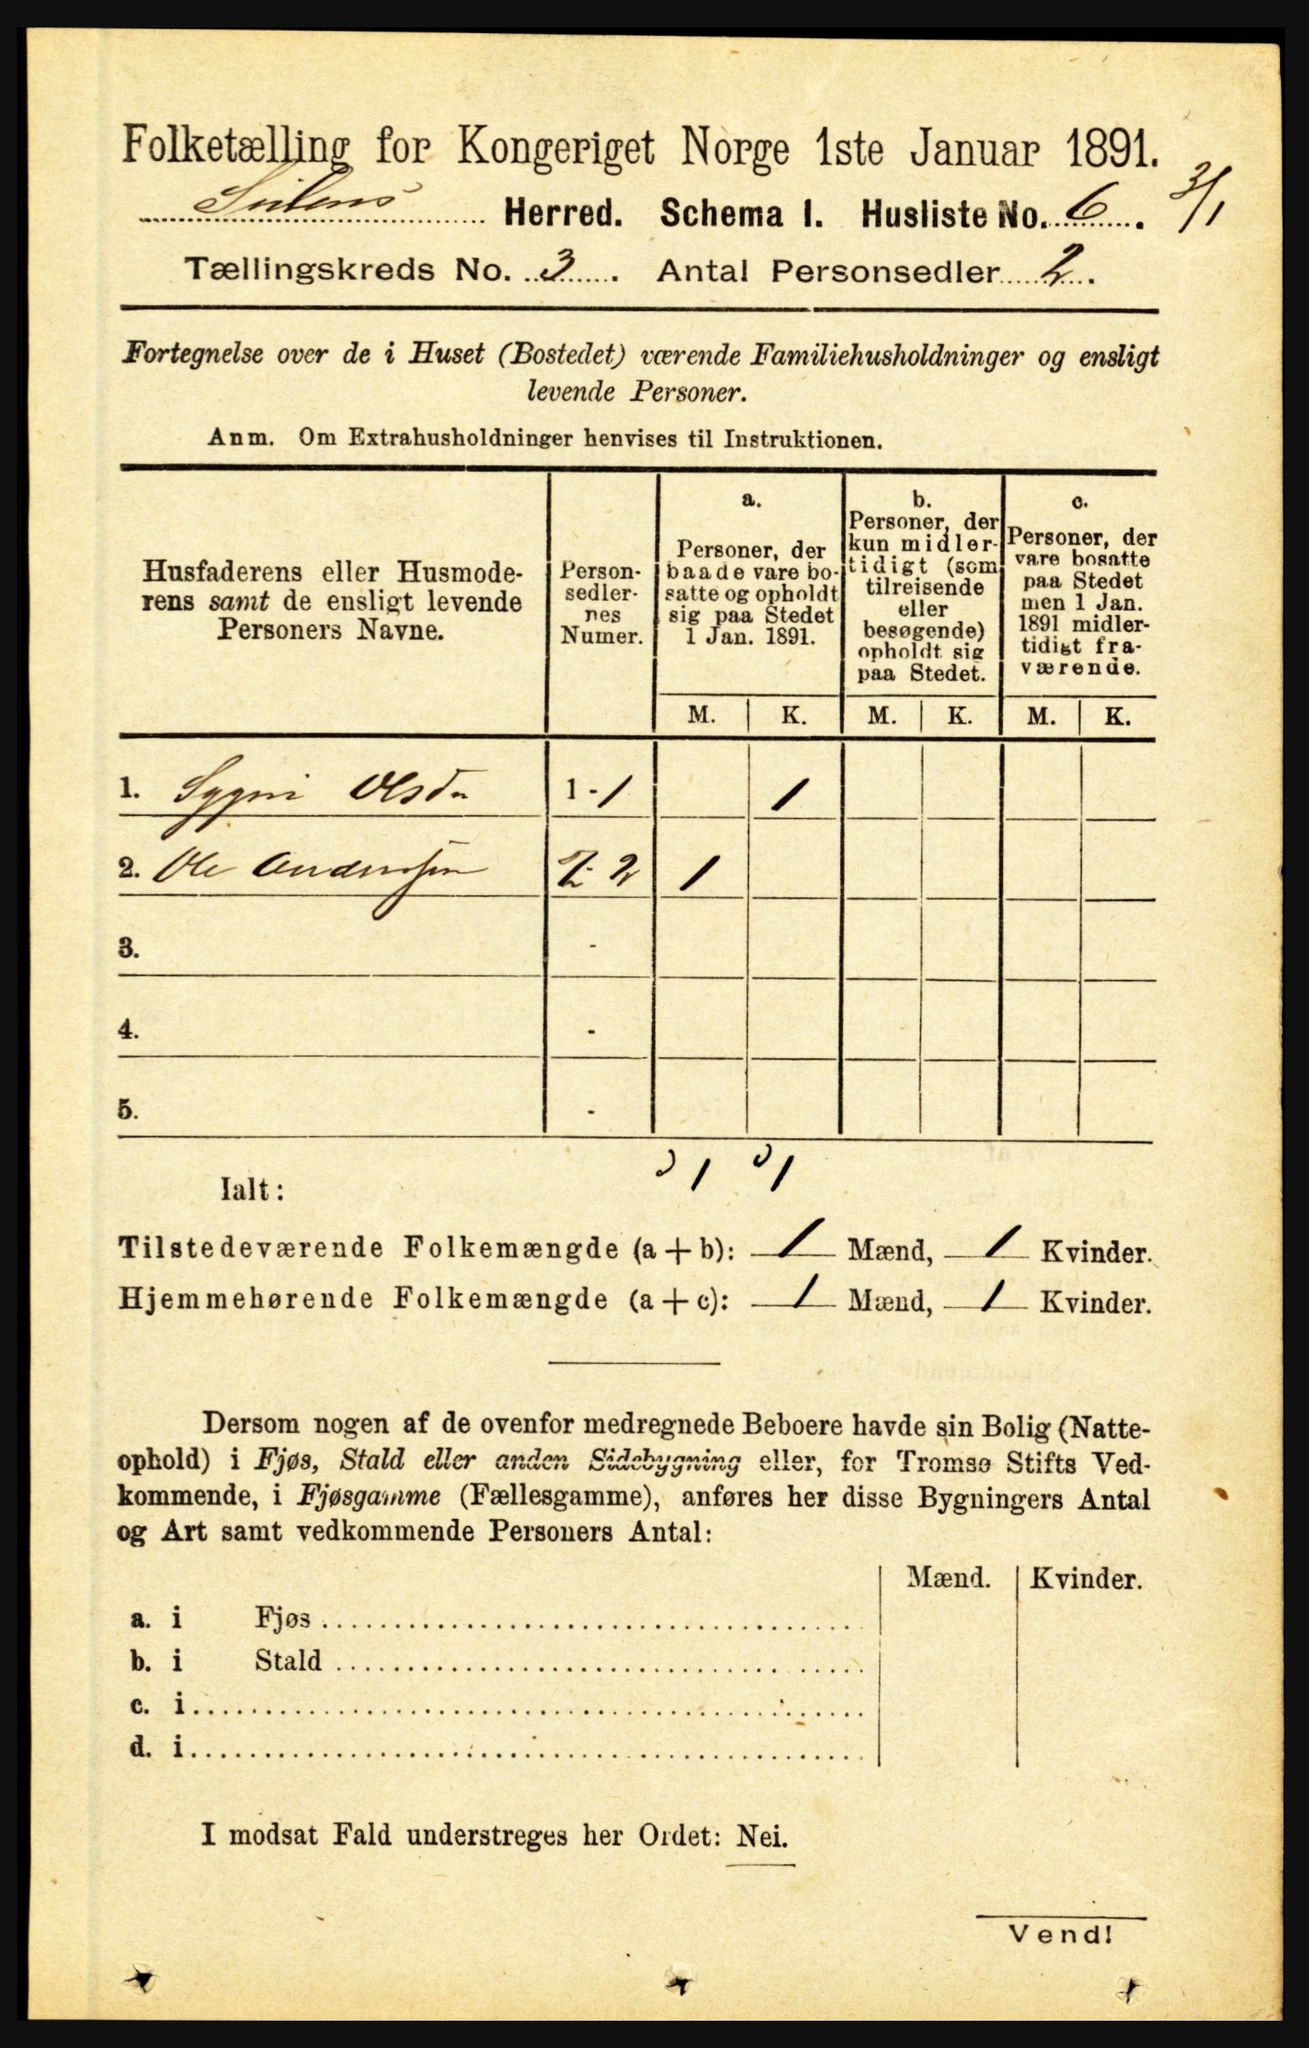 Folketælling for Kongeriget Norge 1ste Januar 1891.
Herred. Schema I. Husliste No. 6. 2/1
Tællingskreds No. 3. Antal Personsedler 2.
Fortegnelse over de i Huset (Bostedet) værende Familiehusholdninger og ensligt
levende Personer.
Anm. Om Extrahusholdninger henvises til Instruktionen.
Husfaderens eller Husmode-
rens samt de ensligt levende
Personers Navne.
Person-
sedler-
nes
Numer.
a.
Personer, der
baade vare bo-
satte og opholdt
sig paa Stedet
1 Jan. 1891.
b.
Personer, der
kun midler-
tidigt (som
tilreisende
eller
besøgende)
opholdt sig
paa Stedet.
c.
Personer, der
vare bosatte
paa Stedet
men 1 Jan.
1891 midler-
tidigt fra-
værende.
M. K. M. K. M. K.
1. Olsdr 1 - 1 1
2. Ole Anderssen 2 - 2 1
3. -
4. -
5. -
1 1
Ialt:
Tilstedeværende Folkemængde (a + b): 1 Mænd, 1 Kvinder.
Hjemmehørende Folkemængde (a + c): 1 Mænd, 1 Kvinder.
Dersom nogen af de ovenfor medregnede Beboere havde sin Bolig (Natte-
ophold) i Fjøs, Stald eller anden Sidebygning eller, for Tromsø Stifts Ved-
kommende, i Fjøsgamme (Fællesgamme), anføres her disse Bygningers Antal
og Art samt vedkommende Personers Antal:
Mænd. Kvinder.
a. i Fjøs
b. i Stald
c. i
d. i
I modsat Fald understreges her Ordet: Nei.
Vend!